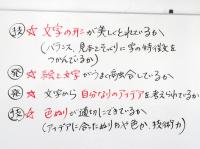 技 ☆ 文字の形が美しくとれているか
(バランス、見本とそっくりに字の特徴を
つかんでいるか)
発 ☆ 絵と文字がうまく融合しているか
発 ☆ 文字から自分なりのアイデアを考えられているか
技 ☆ 色ぬりが適切にできているか
(アイデアに合ったぬり方や色か、技術力)